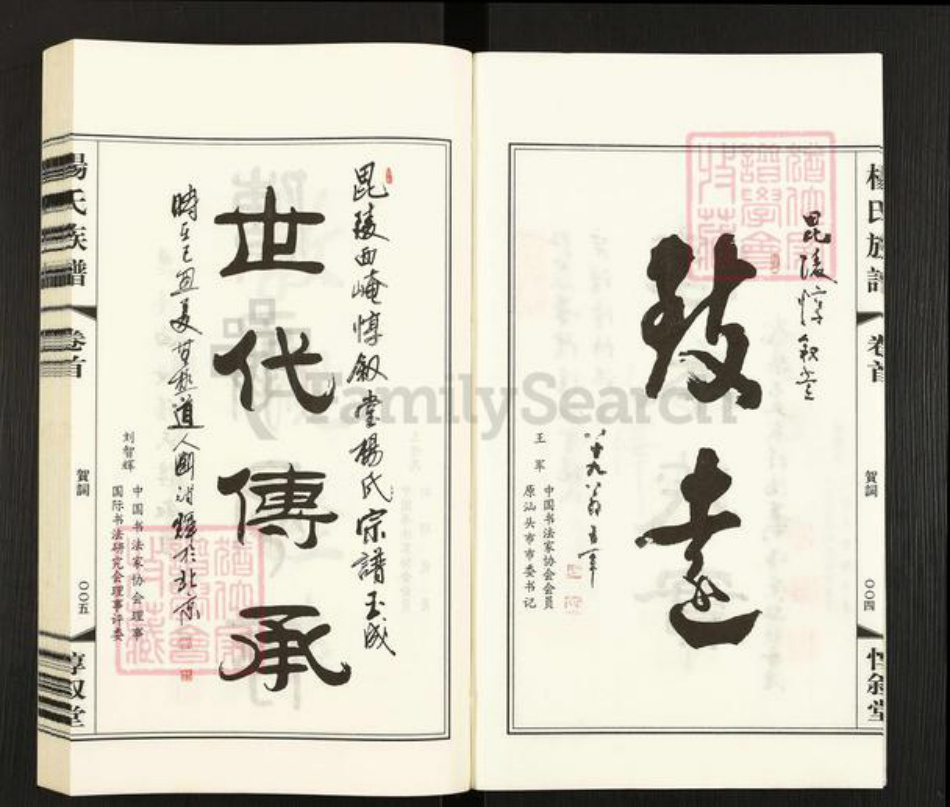 楊氏族譜
卷首
賀詞
〇〇四
惇敘堂
毘陵惇敘堂
致遠
八十九翁
王军
中国书法家协会会员
原汕头市市委书记
毘陵西崦惇敘堂楊氏宗譜玉成
世代傳承
時在己丑夏
道人
於北京
刘智辉
中国书法家协会理事
国际书法研究会理事评委
楊氏族譜
卷首
賀詞
〇〇五
惇叙堂
FamilySearch